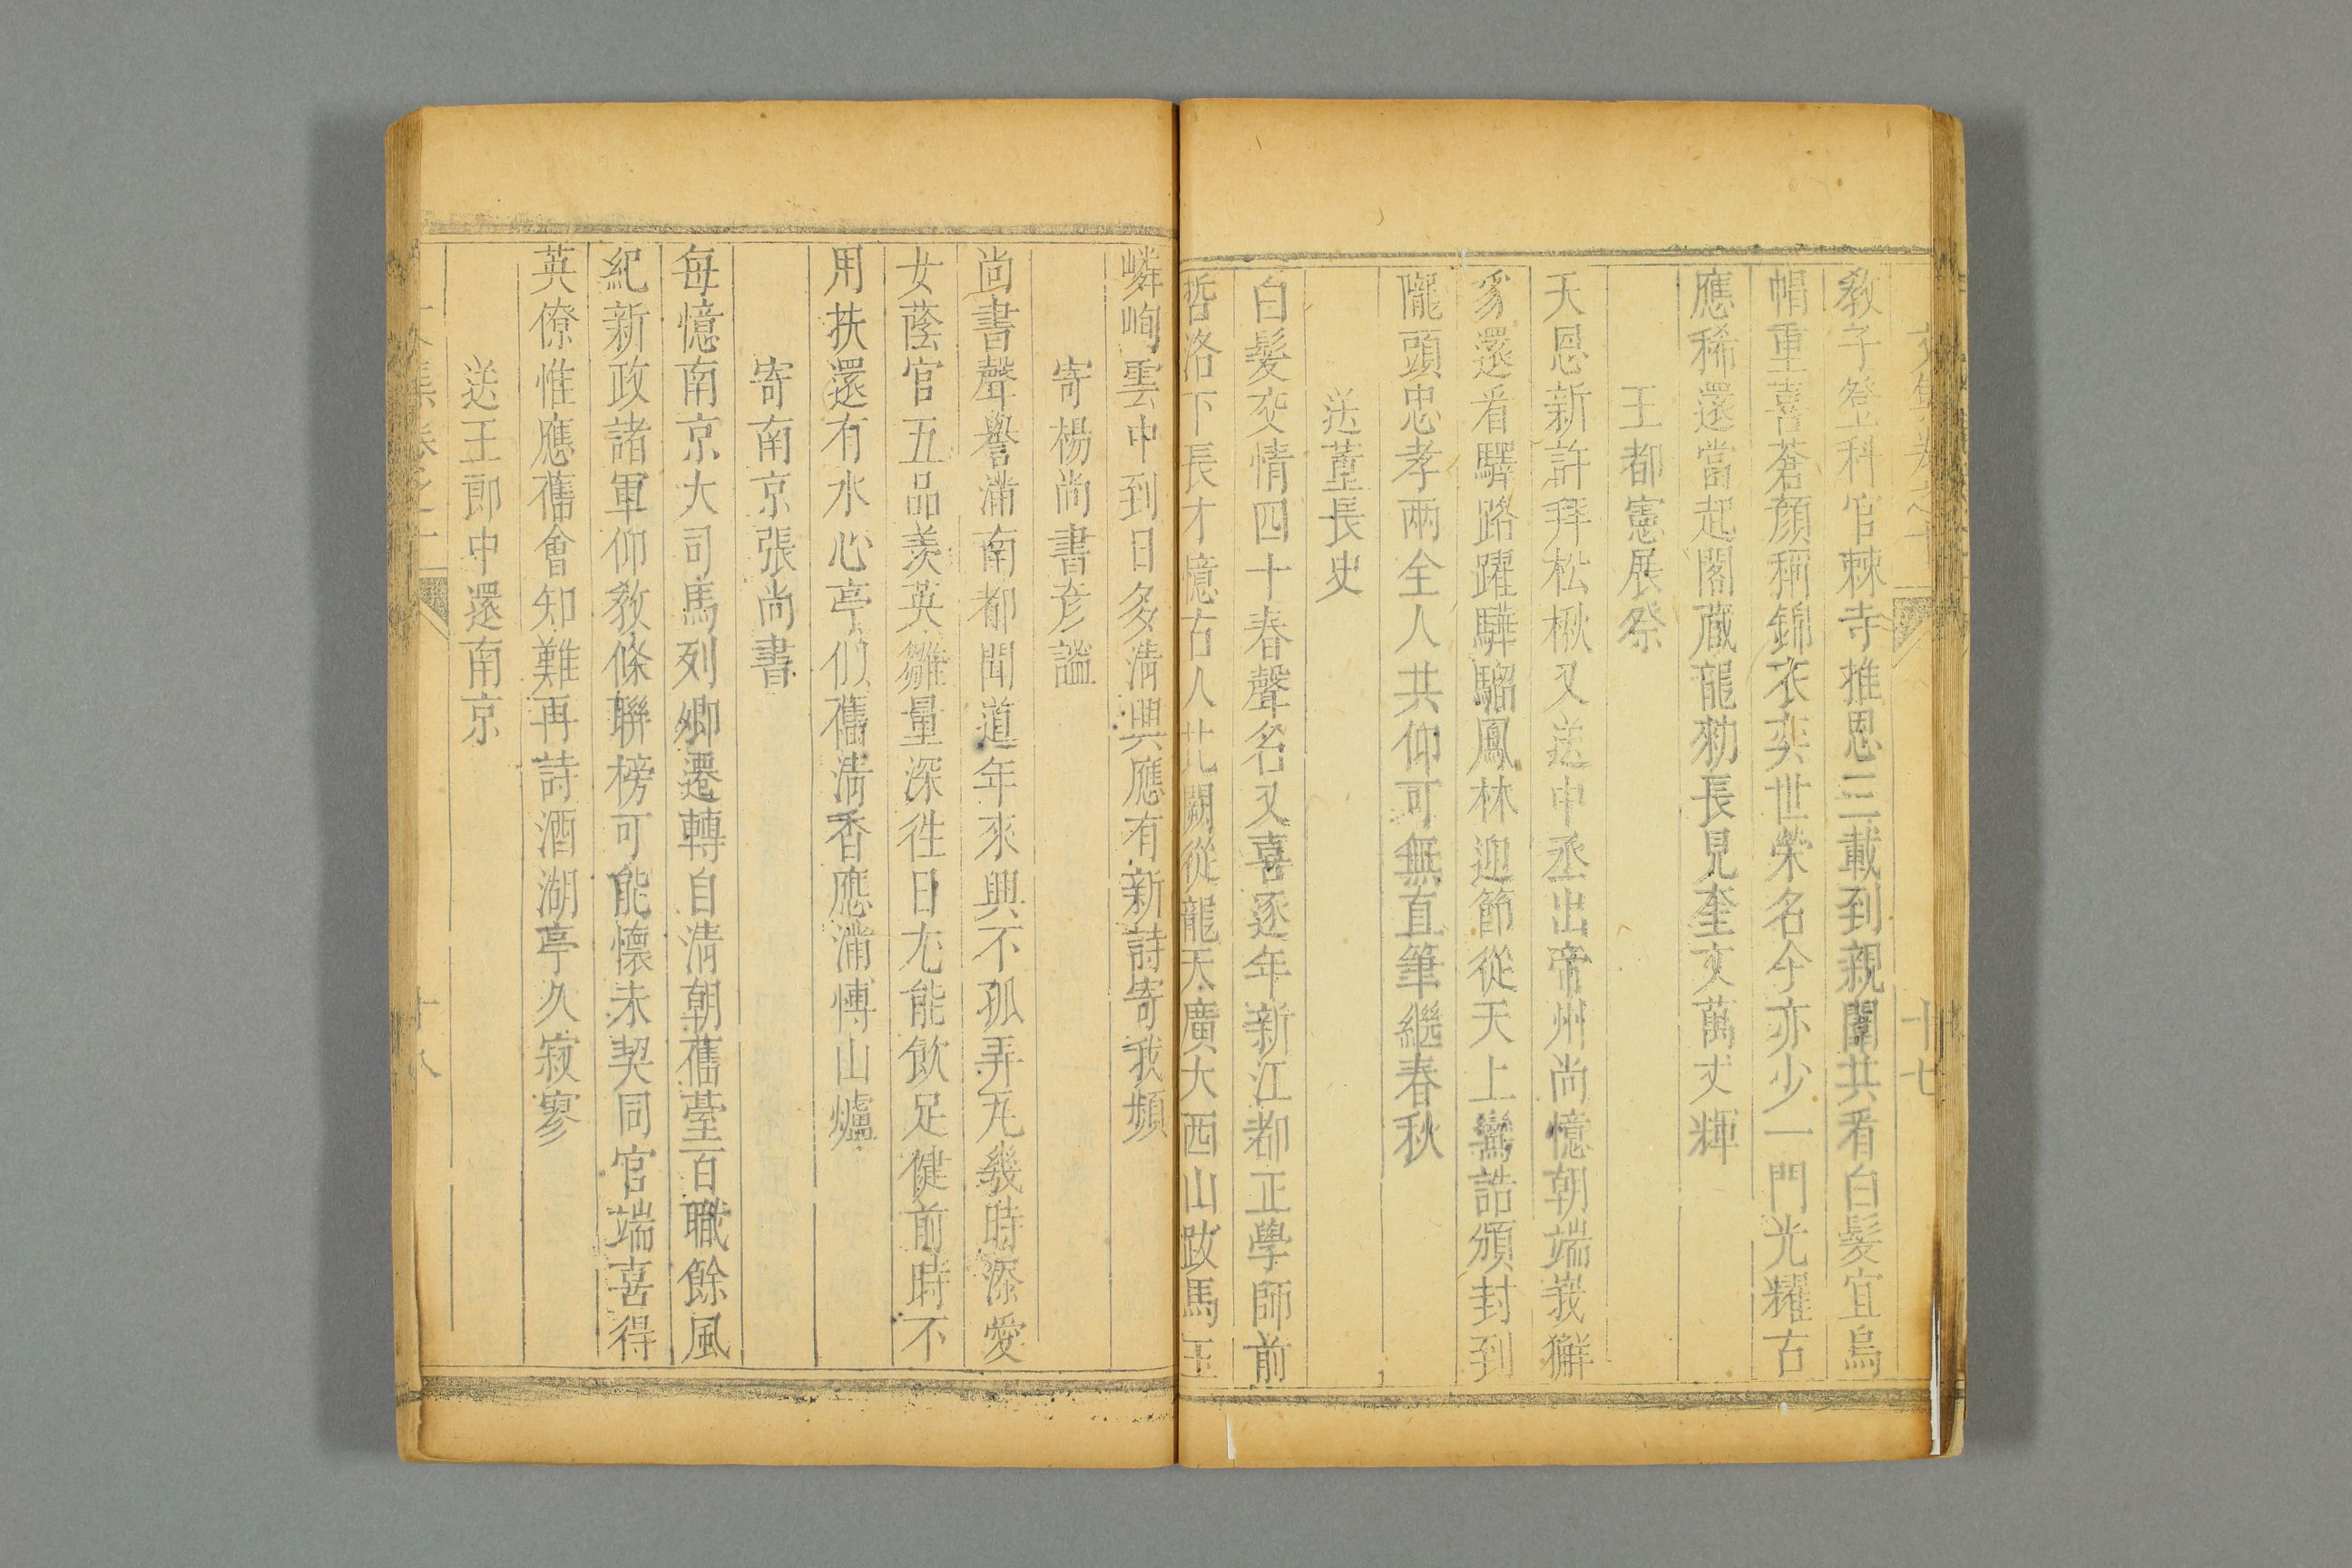 教子登科官棘寺推恩三載到親闈共看白髮宜烏
帽重喜蒼顏稱錦衣奕世榮名今亦少一門光耀古
應稀還當起閣藏龍勑長見奎文萬丈輝
王都憲展祭
天恩新許拜松楸又送中丞出帝州尚憶朝端峩獬
豸還看驛路躍驊騮鳳林迎節從天上鸞誥頒封到
隴頭忠孝兩全人共仰可無直筆繼春秋
送董長史
白髮交情四十春聲名又喜逐年新江都正學師前
哲洛下長才憶古人北闕從龍天廣大西山跋馬玉
嶙峋雲中到日多淸興應有新詩寄我頻
寄楊尚書彥謐
尚書聲譽滿南都聞道年來興不孤弄瓦幾時添愛
女蔭官五品羨英雛量深徃日尤能飲足健前時不
用扶還有水心亭似舊淸香應滿博山爐
寄南京張尚書
每憶南京大司馬列卿遷轉自淸朝舊臺百職餘風
紀新政諸軍仰敎條聯榜可能懷未契同官端喜得
英僚惟應舊會知難再詩酒湖亭久寂寥
送王郎中還南京
十七
十八